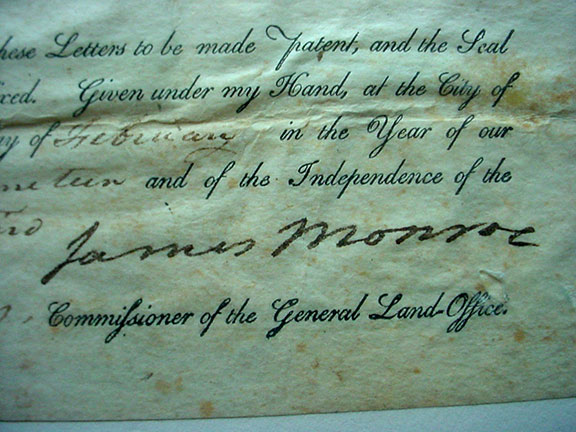 hese Letters to be made Patent, and the Seal
ixed. Given under my Hand, at the City of
y of February in the Year of our
neteen and of the Independence of the
ird
James Monroe
Commiſsioner of the General Land-Office.